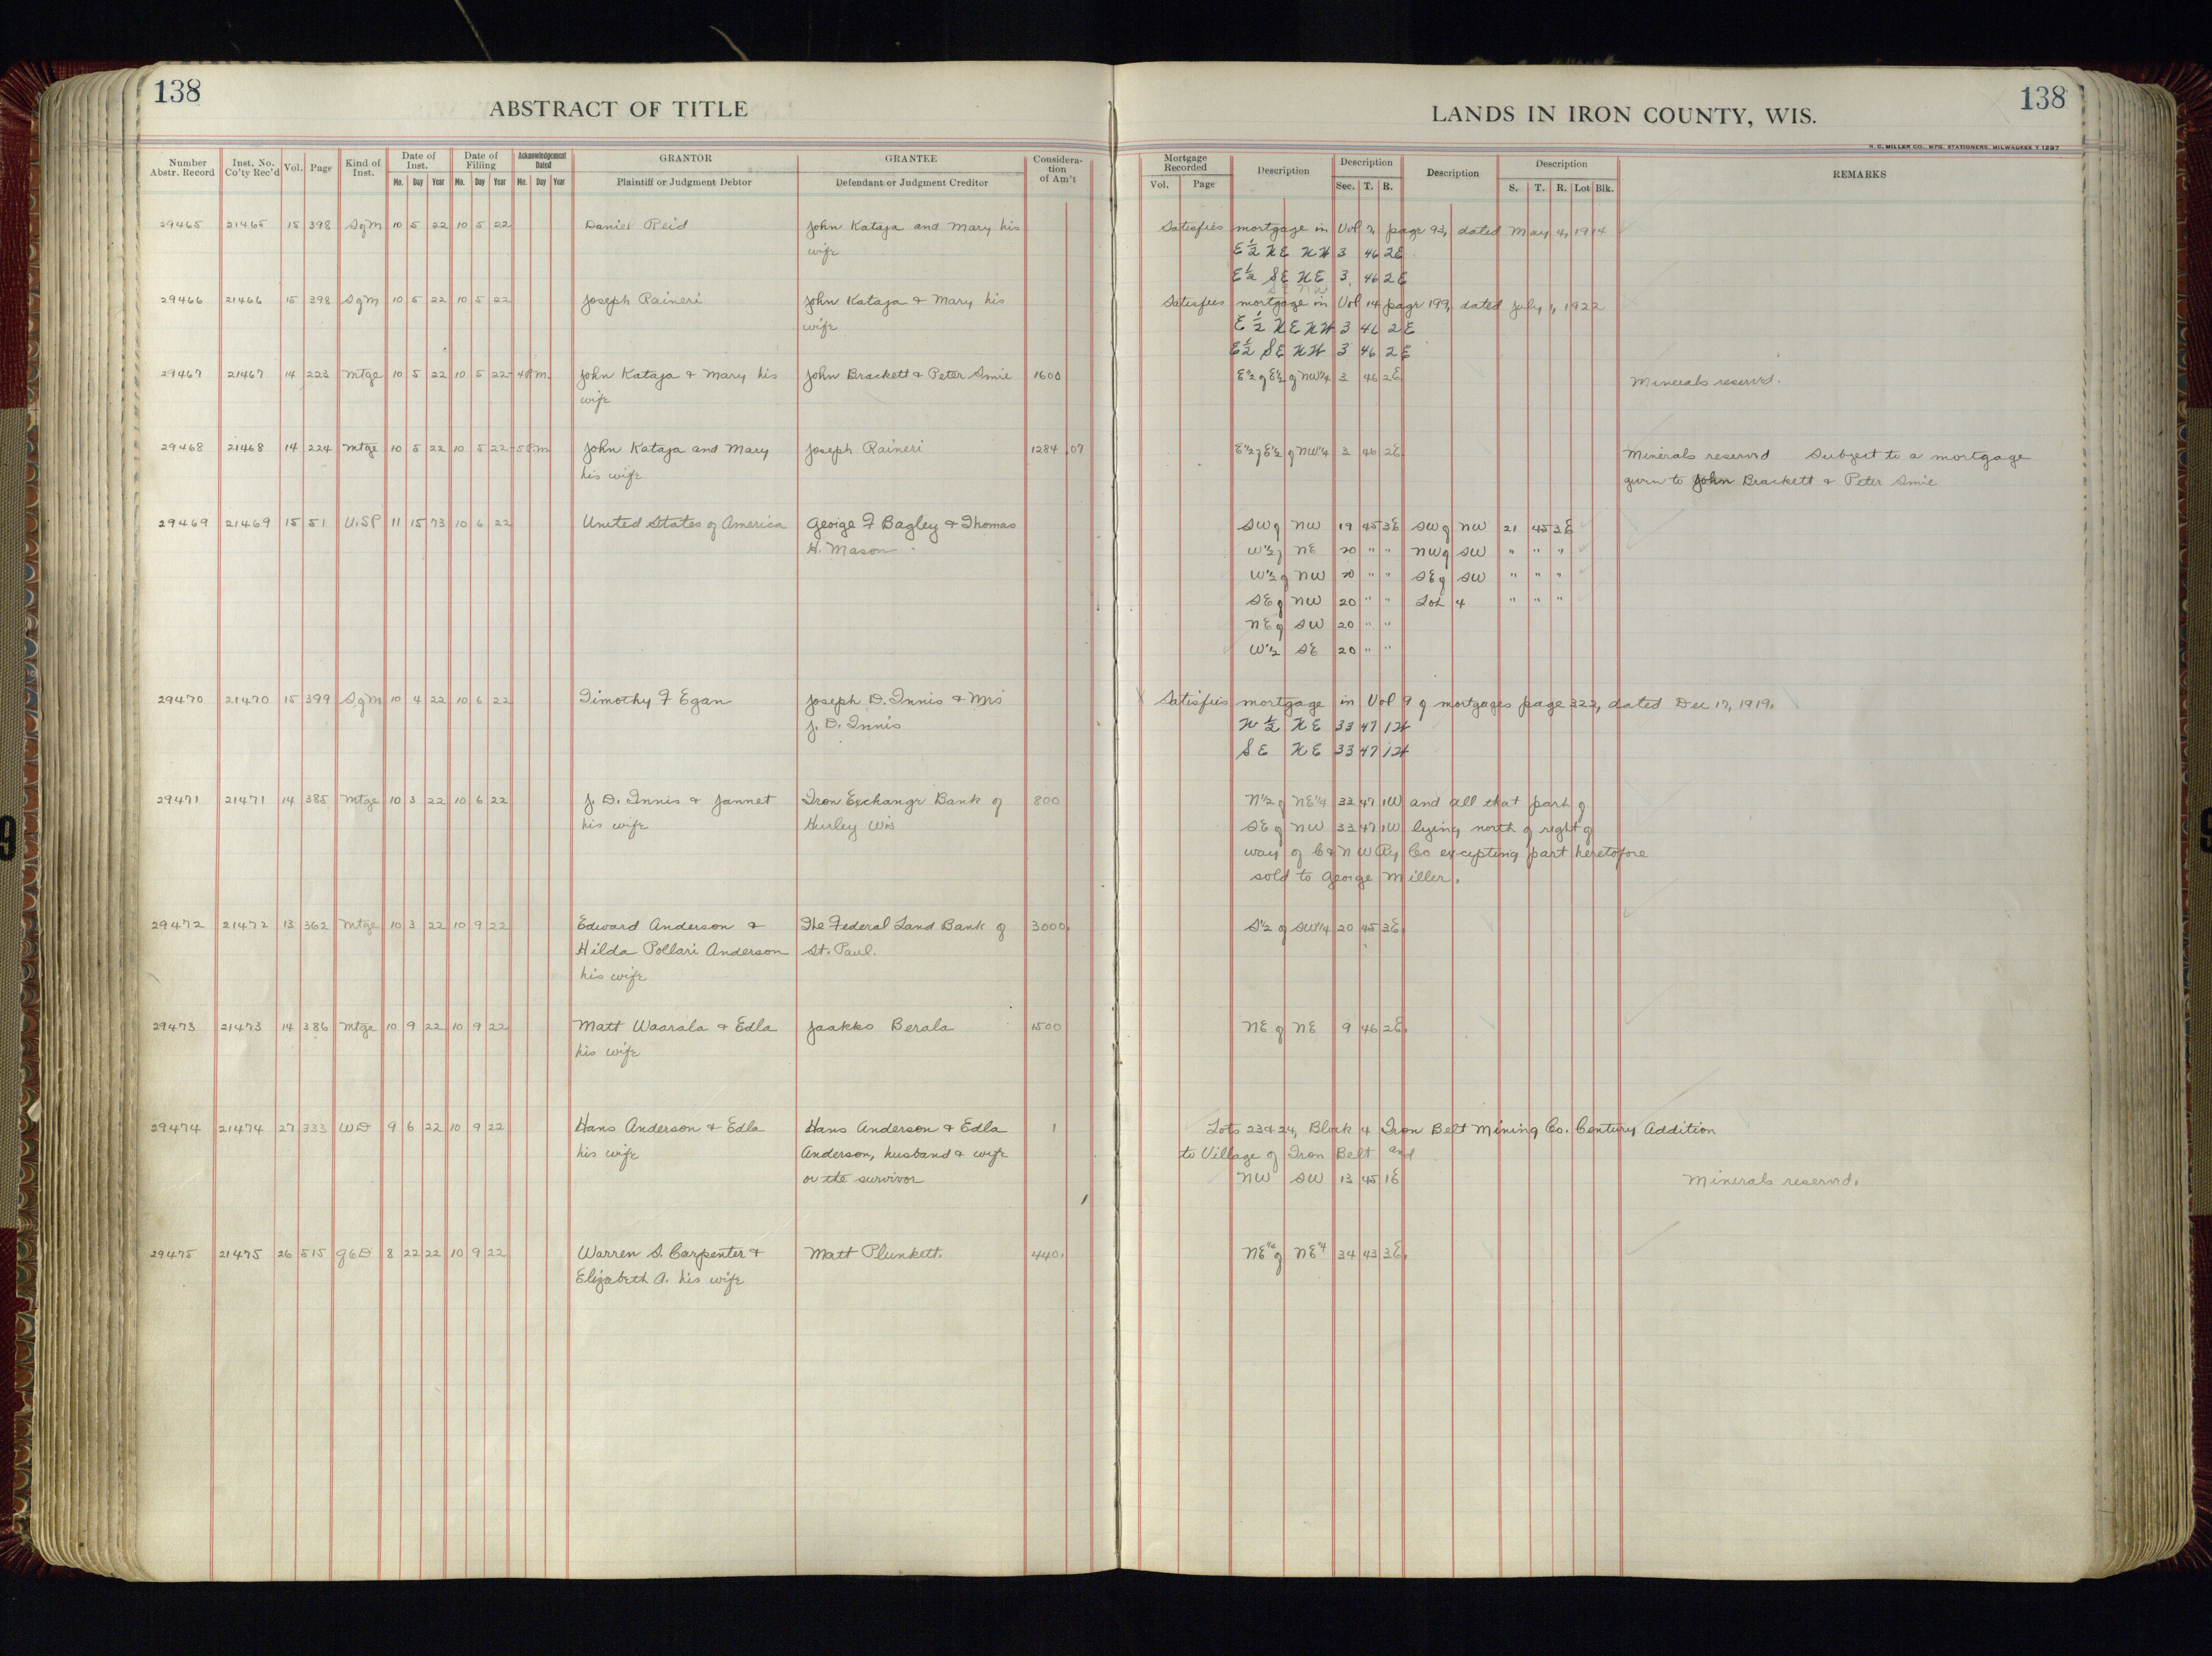 138
ABSTRACT OF TITLE
LANDS IN IRON COUNTY, WIS.
138
H. C. MILLER CO., MFG. STATIONERS, MILWAUKEE Y 1297
Number Abstr. Record Inst. No. Co'ty Rec'd Vol. Page Kind of Inst. Date of Inst. Date of Filing Acknowledgement Dated GRANTOR GRANTEE Consideration of Am't Mortgage Recorded Description Description Description Description REMARKS
Mo. Day Year Mo. Day Year Mo. Day Year Plaintiff or Judgment Debtor Defendant or Judgment Creditor Vol. Page Sec. T. R. S. T. R. Lot Blk.
29465 21465 15 398 SgM 10 5 22 10 5 22 Daniel Reid John Kataja and Mary his Satisfies mortgage in Vol 7, page 93, dated May 4, 1914
wife E½ NE NW 3 46 2E
E½ SE NE 3 46 2E
SE NW
29466 21466 15 398 SgM 10 5 22 10 5 22 Joseph Raineri John Kataja & Mary his Satisfies mortgage in Vol 14 page 199, dated July 1, 1922
wife E ½ NE NW 3 46 2E
E½ SE NW 3 46 2E
29467 21467 14 223 Mtge 10 5 22 10 5 22 - 4 P.m. John Kataja & Mary his John Brackett & Peter Smie 1600 E½ of E½ of NW¼ 3 46 2E Minerals reserved.
wife
29468 21468 14 224 Mtge 10 5 22 10 5 22 - 5 P.m John Kataja and Mary Joseph Raineri 1284.07 E½ of E½ of NW¼ 3 46 2E Minerals reserved Subject to a mortgage
his wife given to John Brackett & Peter Smie
29469 21469 15 51 U.S.P 11 15 73 10 6 22 United States of America George F Bagley & Thomas SW of NW 19 45 3E SW of NW 21 45 3E
H. Mason W½ of NE 20 " " NW of SW " " "
W½ of NW 20 " " SE of SW " " "
SE of NW 20 " " Lot 4 " " "
NE of SW 20 " "
W½ SE 20 " "
29470 21470 15 399 SgM 10 4 22 10 6 22 Timothy F Egan Joseph D. Innis & Mrs Satisfies mortgage in Vol 9 of mortgages page 322, dated Dec 17, 1919.
J. D. Innis N ½ NE 33 47 1W
SE NE 33 47 1W
29471 21471 14 385 Mtge 10 3 22 10 6 22 J. D. Innis & Jannet Iron Exchange Bank of 800 N½ of NE¼ 33 47 1W and all that part of
his wife Hurley Wis SE of NW 33 47 1W lying north of right of
way of C & N W Ry Co excepting part heretofore
sold to George Miller.
29472 21472 13 362 Mtge 10 3 22 10 9 22 Edward Anderson & The Federal Land Bank of 3000. S½ of SW¼ 20 45 3E
Hilda Pollari Anderson St. Paul.
his wife
29473 21473 14 386 Mtge 10 9 22 10 9 22 Matt Waarala & Edla Jaakko Berala 1500 NE of NE 9 46 2E.
his wife
29474 21474 27 333 WD 9 6 22 10 9 22 Hans Anderson & Edla Hans Anderson & Edla 1 Lots 23 & 24, Block 4 Iron Belt Mining Co. Century Addition
his wife Anderson, husband & wife to Village of Iron Belt and
or the survivor NW SW 13 45 1E Minerals reserved.
29475 21475 26 515 QCD 8 22 22 10 9 22 Warren S. Carpenter & Matt Plunkett. 440. NE¼ of NE¼ 34 43 3E.
Elizabeth A. his wife